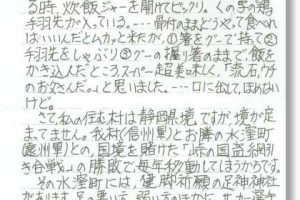 る時、炊飯ジャーを開けてビックリ。くの字の鶏
手羽先が入っている。…骨付のままどうやって食べれ
ばいいんだとムカッと来たが、①箸をグーで持て②
手羽先をしゃぶり③グーの握り箸のままで、飯を
かき込んだところスーパー超美味しく、「流石、ウチ
のお父さんだ。」と思いました。…口に出してほめない
けど。
さて私の住む村は静岡県境ですが境が定
まってません。我村(信州里)とお隣の水窪町
(遠州里)との、国境を賭けた「峠の国盗綱引
き合戦」の勝敗で、毎年移動してしまうからです。
その水窪町には、健脚祈願の足神神社
があります。足の悪い方、弱い方のほかに、サッカー選手